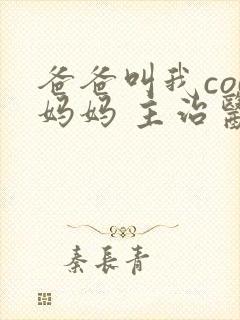 爸爸叫我co
妈妈 主治醫
秦長青